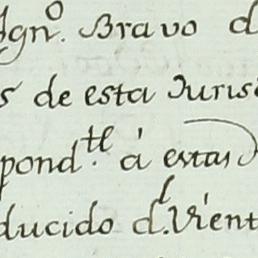 Ygnº. Bravo d
s de esta Juris
pond.te á estas
ducido d.l Vient